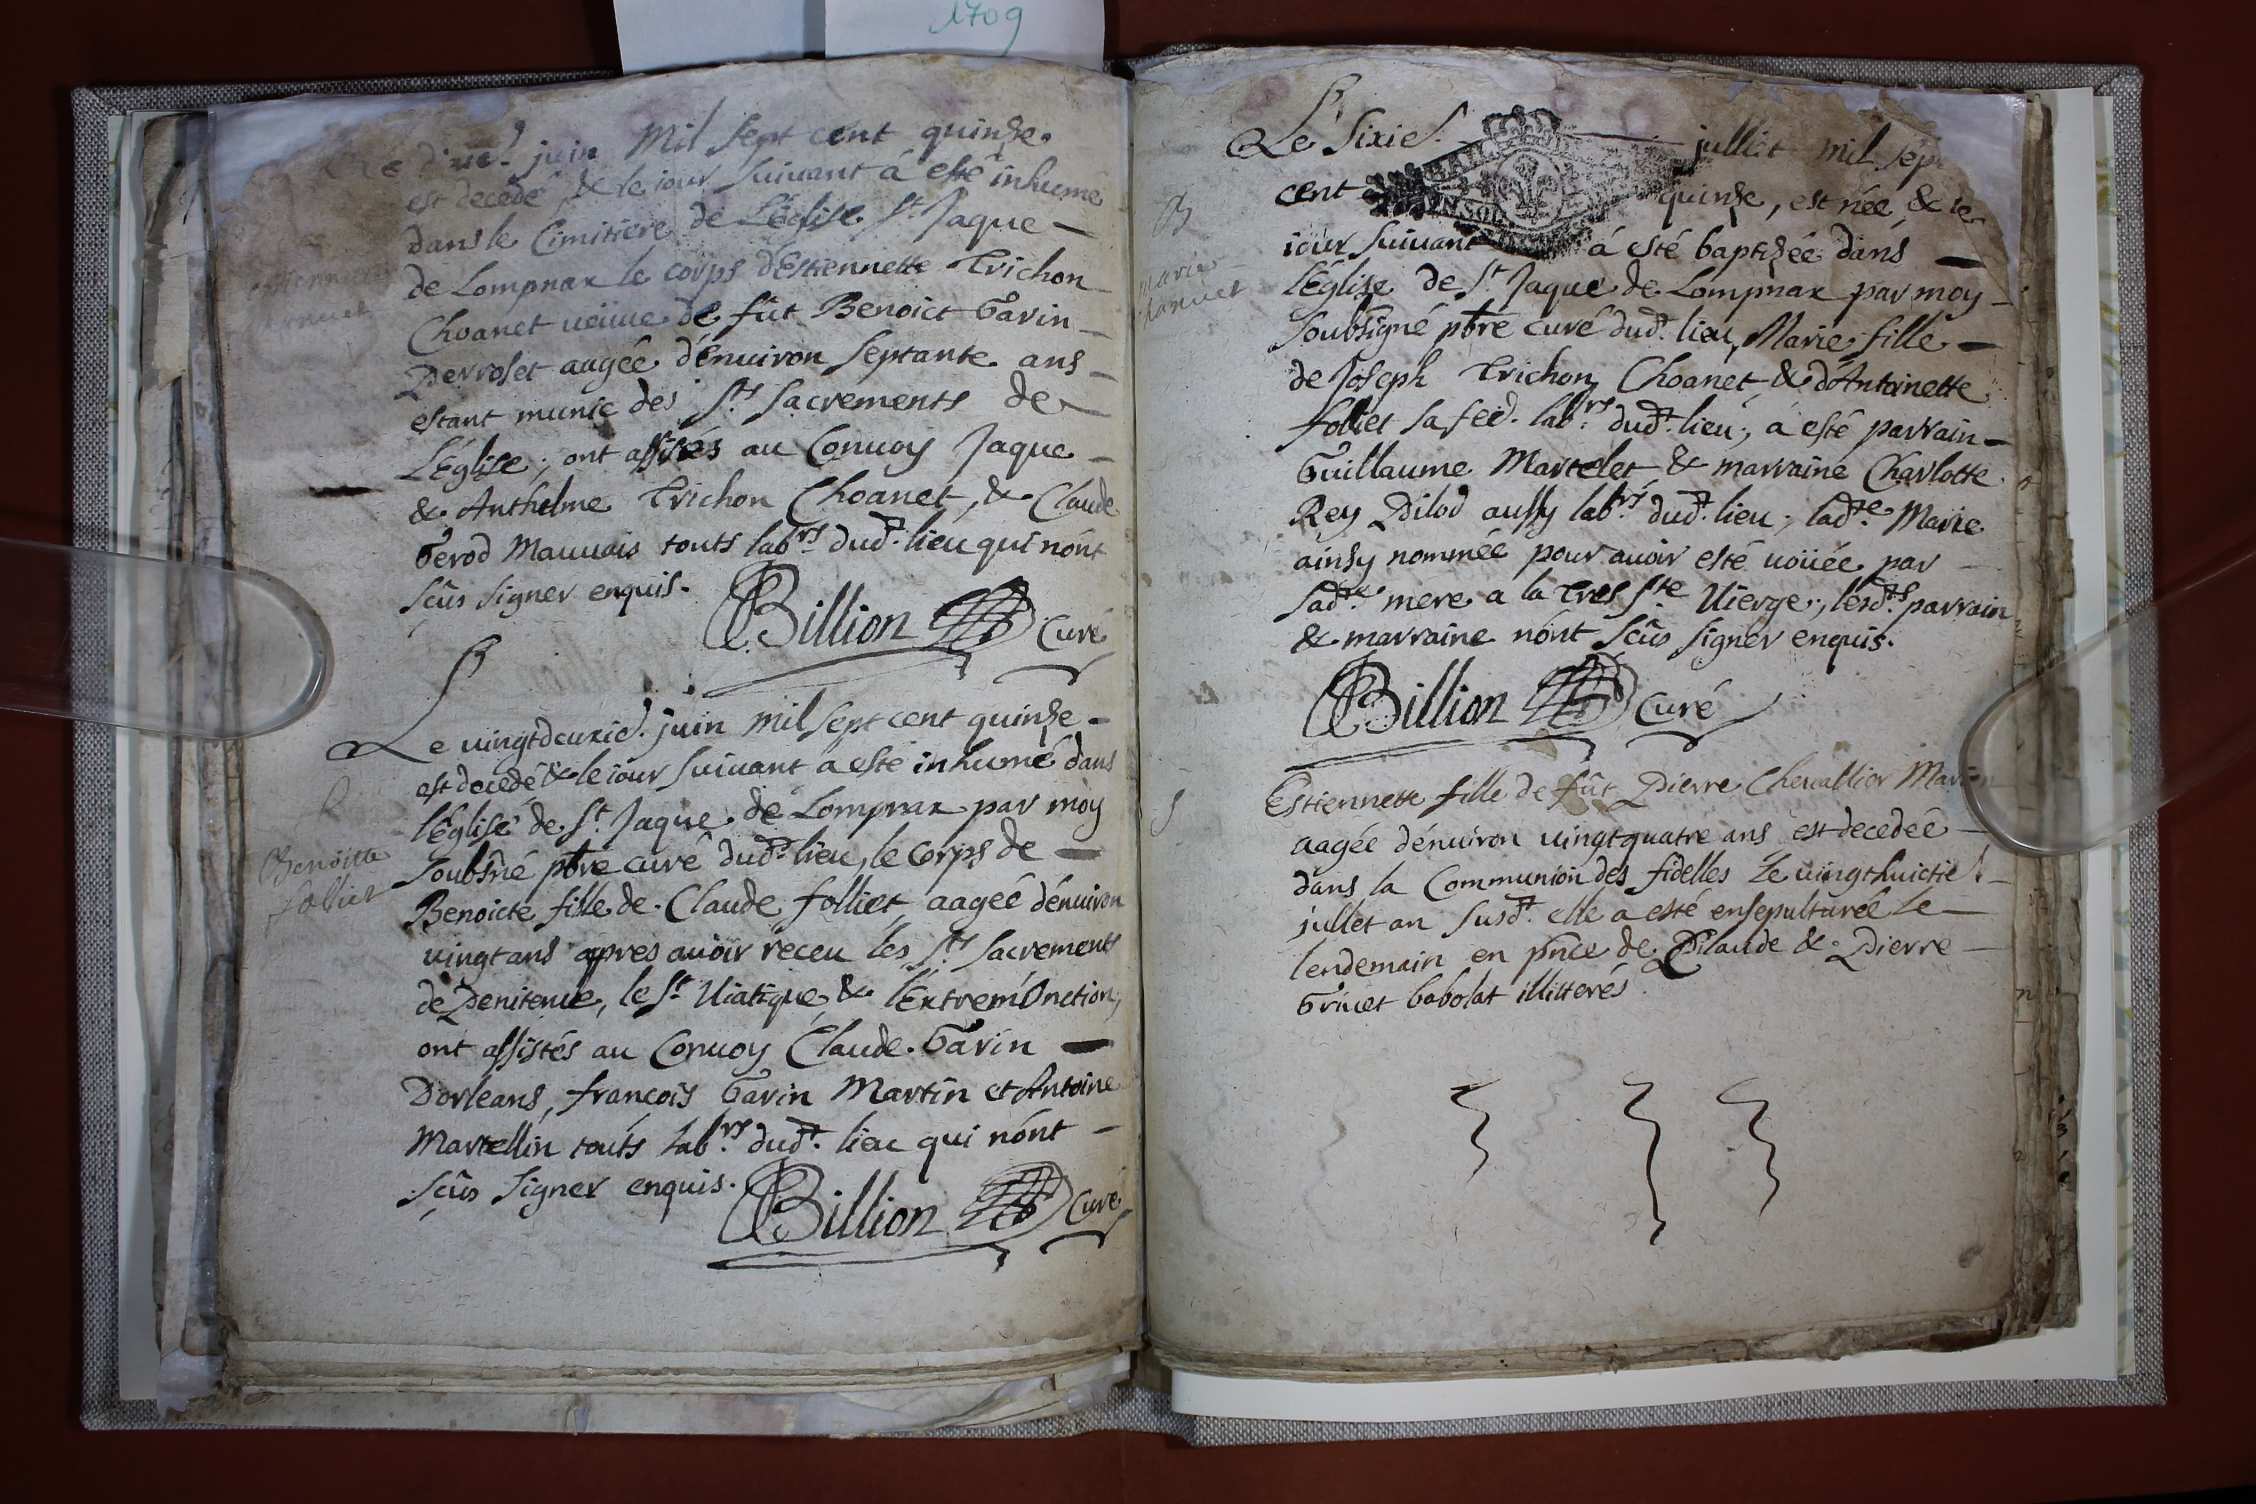 1709
juin Mil Sept cent quinze.
est decedé & le iour suiuant á esté inhumé
dans le Cimitiere de L'église St Jaque
de Lompnax le corps d'Estiennette Trichon
Choanet ueüue de fût Benoict Garin
Perroset aagée d'enuiron Septante ans
estant munie des Sts Sacrements de
L'église; ont assistés au Conuoy Jaque
& Anthelme Trichon Choanet, & Claude
Gerod Mauuais touts labrs dudt lieu qui nónt
Scûs signer enquis.
Billion Curé
Le uingtdeuxie. juin mil sept cent quinze
est decedé & le iour suiuant a esté inhumé dans
l'église de St Jaque de Lompnax par moy
Soubsné pbre curé dudt lieu, le corps de
Benoicte fille de Claude folliet aagée dénuiron
uingt ans apres auoir receu les Sts Sacrements
de Penitence, le St Uiatique & l'ExtremOnction,
ont assistés au Conuoy Claude Garin
Dorleans, francois Garin Martin et Antoine
Martellin touts labrs dudt lieu qui nónt
Scûs signer enquis.
Billion Curé
Benoitte
folliet
Le Sixie. julliet mil sept
cent quinze, est née, & le
iour suiuant á esté baptizée dans
l'Église de St Jaque de Lompnax par moy
Soubsigné pbre curé dudt lieu, Marie fille
de Joseph Trichon Choanet & d'Antoinette
folliet sa fee. labrs dudt lieu, á esté parrain
Guillaume Martelet & marraine Charlotte
Rey Dilod aussy labrs dudt lieu; ladte Marie
ainsy nommée pour auoir esté uoüée par
sadte mere a la Tres Ste Uierge; lesdts parrain
& marraine nónt Scûs signer enquis.
Billion Curé
B
marie
chanuet
S
Estiennette fille de fût Pierre Cheuallier
aagée dénuiron uingtquatre ans est decedée
dans la Communion des fidelles Le uingthuictie
jullet an susdt. elle a esté ensepulturée le
lendemain en pnce de Claude & Pierre
Gruet babolat illitterés